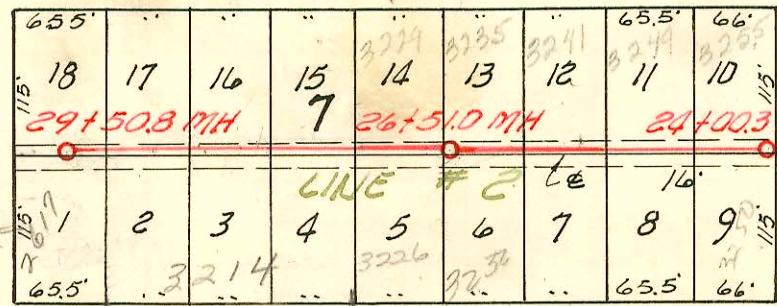 65.5' " " " 65.5' 66'
3229 3235 3241 3249 3255
115' 18 17 16 15 14 13 12 11 10 115'
7
29+50.8 MH 26+51.0 MH 24+00.3
LINE # 2 16'
115' 1 2 3 4 5 6 7 8 9 115'
3214 3226
65.5' .. .. .. .. .. 65.5' 66'